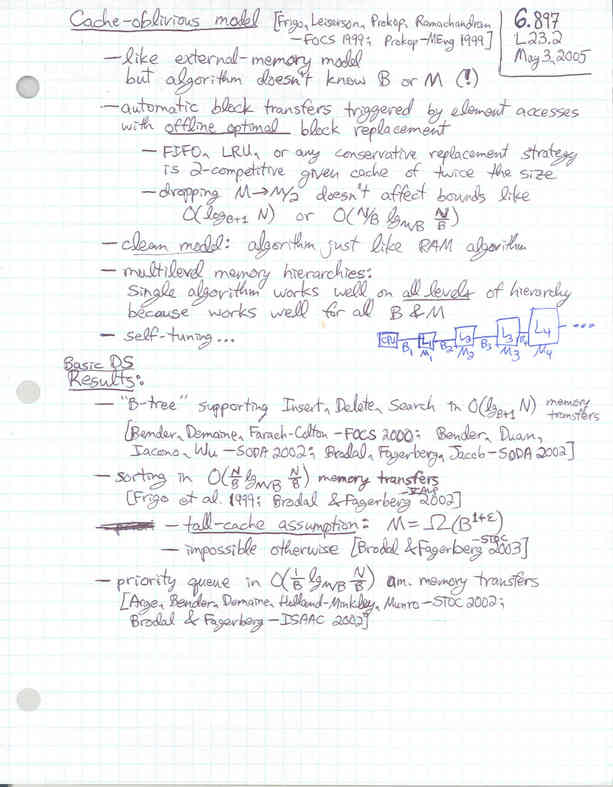 Cache-oblivious model [Frigo, Leiserson, Prokop, Ramachandran
– FOCS 1999; Prokop – MEng 1999]
6.897
L23.2
May 3, 2005
– like external-memory model
but algorithm doesn't know B or M (!)
– automatic block transfers triggered by element accesses
with offline optimal block replacement
– FIFO, LRU, or any conservative replacement strategy
is 2-competitive given cache of twice the size
– dropping M→M/2 doesn't affect bounds like
O(log_{B+1} N) or O(N/B lg_{M/B} N/B)
– clean model: algorithm just like RAM algorithm
– multilevel memory hierarchies:
single algorithm works well on all levels of hierarchy
because works well for all B & M
– self-tuning...
CPU B₁ L₁ M₁ B₂ L₂ M₂ B₃ L₃ M₃ B₄ L₄ M₄ ...
Basic DS
Results:
– "B-tree" supporting Insert, Delete, Search in O(lg_{B+1} N) memory
transfers
[Bender, Demaine, Farach-Colton – FOCS 2000; Bender, Duan,
Iacono, Wu – SODA 2002; Brodal, Fagerberg, Jacob – SODA 2002]
– sorting in O(N/B lg_{M/B} N/B) memory transfers
[Frigo et al. 1999; Brodal & Fagerberg – ICALP 2002]
– tall-cache assumption: M = Ω(B^{1+ε})
– impossible otherwise [Brodal & Fagerberg – STOC 2003]
– priority queue in O(1/B lg_{M/B} N/B) am. memory transfers
[Arge, Bender, Demaine, Holland-Minkley, Munro – STOC 2002;
Brodal & Fagerberg – ISAAC 2002]